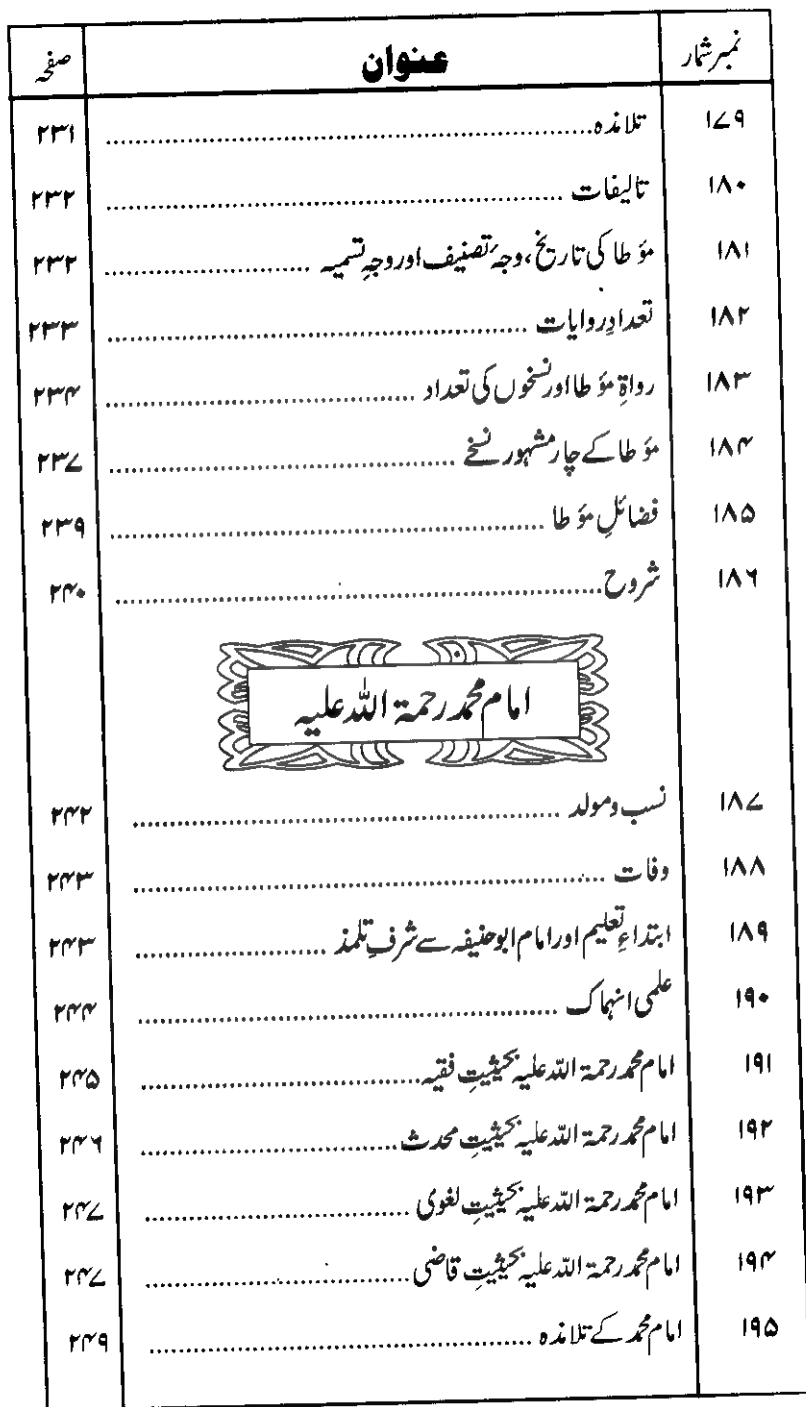 نمبر شمار عنوان صفحہ
۱۷۹ تلامذہ ۲۳۱
۱۸۰ تالیفات ۲۳۲
۱۸۱ مؤطا کی تاریخ، وجہٴ تصنیف اور وجہِ تسمیہ ۲۳۲
۱۸۲ تعدادِ روایات ۲۳۳
۱۸۳ رواۃِ مؤطا اور نسخوں کی تعداد ۲۳۴
۱۸۴ مؤطا کے چار مشہور نسخے ۲۳۷
۱۸۵ فضائلِ مؤطا ۲۳۹
۱۸۶ شروح ۲۴۰
امام محمد رحمۃ اللہ علیہ
۱۸۷ نسب و مولد ۲۴۲
۱۸۸ وفات ۲۴۳
۱۸۹ ابتداءِ تعلیم اور امام ابو حنیفہ سے شرفِ تلمذ ۲۴۳
۱۹۰ علمی انہماک ۲۴۴
۱۹۱ امام محمد رحمۃ اللہ علیہ بحیثیتِ فقیہ ۲۴۵
۱۹۲ امام محمد رحمۃ اللہ علیہ بحیثیتِ محدث ۲۴۶
۱۹۳ امام محمد رحمۃ اللہ علیہ بحیثیتِ لغوی ۲۴۷
۱۹۴ امام محمد رحمۃ اللہ علیہ بحیثیتِ قاضی ۲۴۷
۱۹۵ امام محمد کے تلامذہ ۲۴۹